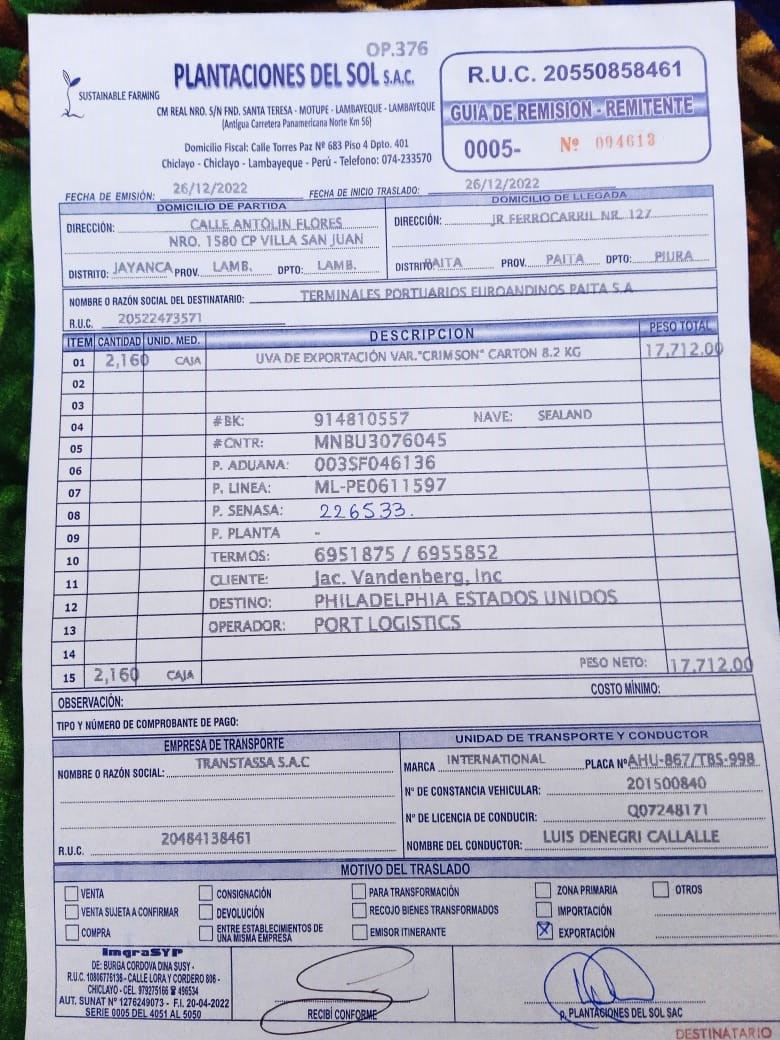 OP.376
SUSTAINABLE FARMING
PLANTACIONES DEL SOL S.A.C.
CM REAL NRO. S/N FND. SANTA TERESA - MOTUPE - LAMBAYEQUE - LAMBAYEQUE
(Antigua Carretera Panamericana Norte Km 56)
Domicilio Fiscal: Calle Torres Paz Nº 683 Piso 4 Dpto. 401
Chiclayo - Chiclayo - Lambayeque - Perú - Telefono: 074-233570
R.U.C. 20550858461
GUIA DE REMISION - REMITENTE
0005- Nº 004613
FECHA DE EMISIÓN: 26/12/2022 FECHA DE INICIO TRASLADO: 26/12/2022
DOMICILIO DE PARTIDA
DIRECCIÓN: CALLE ANTOLIN FLORES
NRO. 1580 CP VILLA SAN JUAN
DISTRITO: JAYANCA PROV. LAMB. DPTO: LAMB.
DOMICILIO DE LLEGADA
DIRECCIÓN: JR FERROCARRIL NR. 127
DISTRITO: PAITA PROV. PAITA DPTO: PIURA
NOMBRE O RAZÓN SOCIAL DEL DESTINATARIO: TERMINALES PORTUARIOS EUROANDINOS PAITA S.A
R.U.C. 20522473571
ITEM CANTIDAD UNID. MED. DESCRIPCION PESO TOTAL
01 2,160 CAJA UVA DE EXPORTACIÓN VAR."CRIMSON" CARTON 8.2 KG 17,712.00
02
03
04 #BK: 914810557 NAVE: SEALAND
05 #CNTR: MNBU3076045
06 P. ADUANA: 003SF046136
07 P. LINEA: ML-PE0611597
08 P. SENASA: 226533.
09 P. PLANTA -
10 TERMOS: 6951875 / 6955852
11 CLIENTE: Jac. Vandenberg, Inc
12 DESTINO: PHILADELPHIA ESTADOS UNIDOS
13 OPERADOR: PORT LOGISTICS
14
15 2,160 CAJA PESO NETO: 17,712.00
OBSERVACIÓN: COSTO MÍNIMO:
TIPO Y NÚMERO DE COMPROBANTE DE PAGO:
EMPRESA DE TRANSPORTE
NOMBRE O RAZÓN SOCIAL: TRANSTASSA S.A.C
R.U.C. 20484138461
UNIDAD DE TRANSPORTE Y CONDUCTOR
MARCA INTERNATIONAL PLACA Nº AHU-867/TBS-998
Nº DE CONSTANCIA VEHICULAR: 201500840
Nº DE LICENCIA DE CONDUCIR: Q07248171
NOMBRE DEL CONDUCTOR: LUIS DENEGRI CALLALLE
MOTIVO DEL TRASLADO
VENTA CONSIGNACIÓN PARA TRANSFORMACIÓN ZONA PRIMARIA OTROS
VENTA SUJETA A CONFIRMAR DEVOLUCIÓN RECOJO BIENES TRANSFORMADOS IMPORTACIÓN
COMPRA ENTRE ESTABLECIMIENTOS DE UNA MISMA EMPRESA EMISOR ITINERANTE X EXPORTACIÓN
ImgraSYP
DE: BURGA CORDOVA DINA SUSY -
R.U.C. 10806776136 - CALLE LORA Y CORDERO 806 -
CHICLAYO - CEL. 979275166 ☎ 496534
AUT. SUNAT Nº 1276249073 - F.I. 20-04-2022
SERIE 0005 DEL 4051 AL 5050
RECIBÍ CONFORME
p. PLANTACIONES DEL SOL SAC
DESTINATARIO